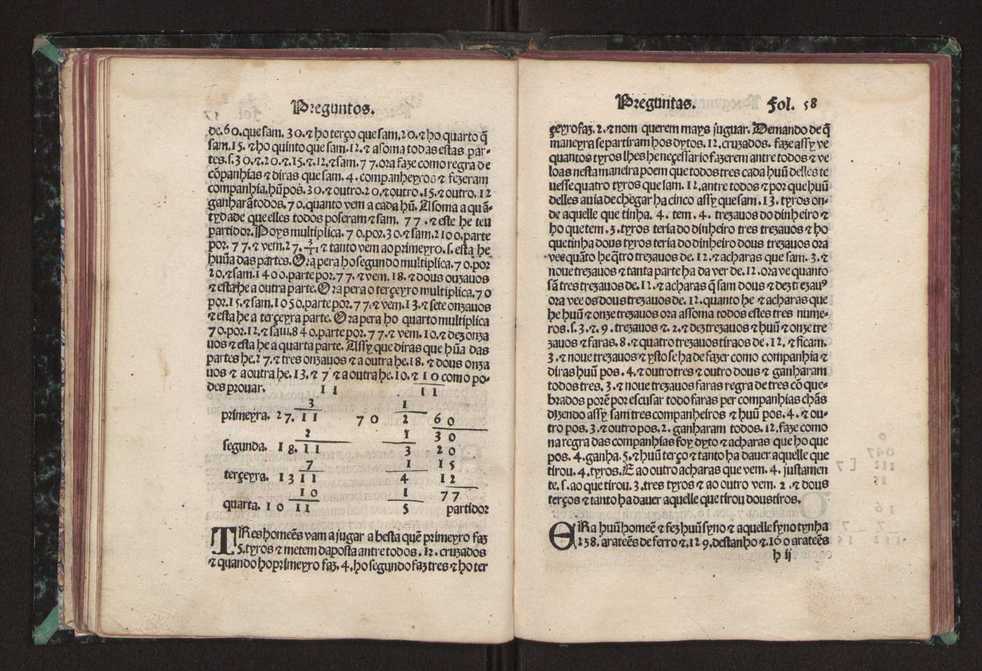 Preguntos.
de.60.que sam.30.⁊ ho terço que sam.20.⁊ ho quarto q̃
sam.15.⁊ ho quinto que sam.12.⁊ asoma todas estas par-
tes.s.30.⁊.20.⁊.15.⁊.12.⁊ sam.77.ora faze como regra de
cõpanhias ⁊ diras que sam.4.companheyros ⁊ fezeram
companhia.hũ pos.30.⁊ outro.20.⁊ outro.15.⁊ outro.12
ganharã todos.70.quanto vem a cada hũ.Asoma a quã-
tydade que elles todos poseram ⁊ sam.77.⁊ este he teu
partidor.Poys multiplica.70.por.30.⁊ sam.2100.parte
por.77.⁊ vem.27.3/11.⁊ tanto vem ao primeyro.s.esta he
huũa das partes.Ora pera ho segundo multiplica.70.por
20.⁊ sam.1400.parte por.77.⁊ vem.18.⁊ dous onzauos
⁊ esta he a outra parte.Ora pera o terçeyro multiplica.70
por.15.⁊ sam.1050.parte por.77.⁊ vem.13.⁊ sete onzauos
⁊ esta he a terçeyra parte.Ora pera ho quarto multiplica
70.por.12.⁊ sam.840.parte por.77.⁊ vem.10.⁊ dez onza
uos ⁊ esta he a quarta parte.Assy que diras que hũa das
partes he.27.⁊ tres onzauos ⁊ a outra he.18.⁊ dous onza
uos ⁊ a outra he.13.⁊ 7 ⁊ a outra he.10.⁊ 10 como po-
des prouar. 11 11
3 1
primeyra. 27.11 70 2 60
2 1 30
segunda. 18.11 3 20
7 1 15
terçeyra. 1311 4 12
10 1 77
quarta. 10 11 5 partidor
TRes homeẽs vam a jugar a besta quẽ primeyro faz
5.tyros ⁊ metem daposta antre todos.12.cruzados
⁊ quando ho primeyro faz.4.ho segundo faz tres ⁊ ho ter
Preguntas. Fol. 58
çeyro faz.2.⁊ nom querem mays juguar.Demando de q̃
maneyra se partiram hos dytos.12.cruzados. faze assy ve
quantos tyros lhes he neçessario fazerem antre todos ⁊ ve
loas nesta maneira poem que todos tres cada huũ delles te
uesse quatro tyros que sam.12.antre todos ⁊ por que huũ
delles auia de chegar ha cinco assy que sam.13.tyros on-
de aquelle que tinha.4.tem.4.trezauos do dinheiro ⁊
ho que tem.3.tyros teria do dinheiro tres trezauos ⁊ ho
que tinha dous tyros teria do dinheiro dous trezauos ora
vee quãto he q̃tro trezauos de.12.⁊ acharas que sam.3.⁊
noue trezauos ⁊ tanta parte ha da ver de.12.ora ve quanto
sã tres trezauos de.12.⁊ acharas q̃ sam dous ⁊ dez trezauos
ora vee os dous trezauos de.12.quanto he ⁊ acharas que
he huũ ⁊ onze trezauos ora assoma todos estes tres nume-
ros.s.3.⁊.9.trezauos ⁊.2.⁊ dez trezauos ⁊ huũ ⁊ onze tre
zauos ⁊ faras.8.⁊ quatro trezauos tiraos de.12.⁊ ficam.
3.⁊ noue trezauos ⁊ ysto se ha de fazer como companhia ⁊
diras huũ pos.4.⁊ outro tres ⁊ outro dous ⁊ ganharam
todos tres.3.⁊ noue trezauos faras regra de tres cõ que-
brados porẽ por escusar todo faras per companhias chãs
dizendo assy sam tres companheiros ⁊ huũ pos.4.⁊ ou-
tro pos.3.⁊ outro pos.2.ganharam todos.12.faze como
na regra das companhias foy dyto ⁊ acharas que ho que
pos.4.ganha.5.⁊ huũ terço ⁊ tanto ha dauer aquelle que
tirou.4.tyros.E ao outro acharas que vem.4.justamen
te.s.ao que tirou.3.tres tyros ⁊ ao outro vem.2.⁊ dous
terços ⁊ tanto ha dauer aquelle que tirou dous tiros.
ERa huũ homeẽ ⁊ fez huũ syno ⁊ aquelle syno tynha
238.arateẽs de ferro ⁊.129.destanho ⁊.160 arateẽs
h ij